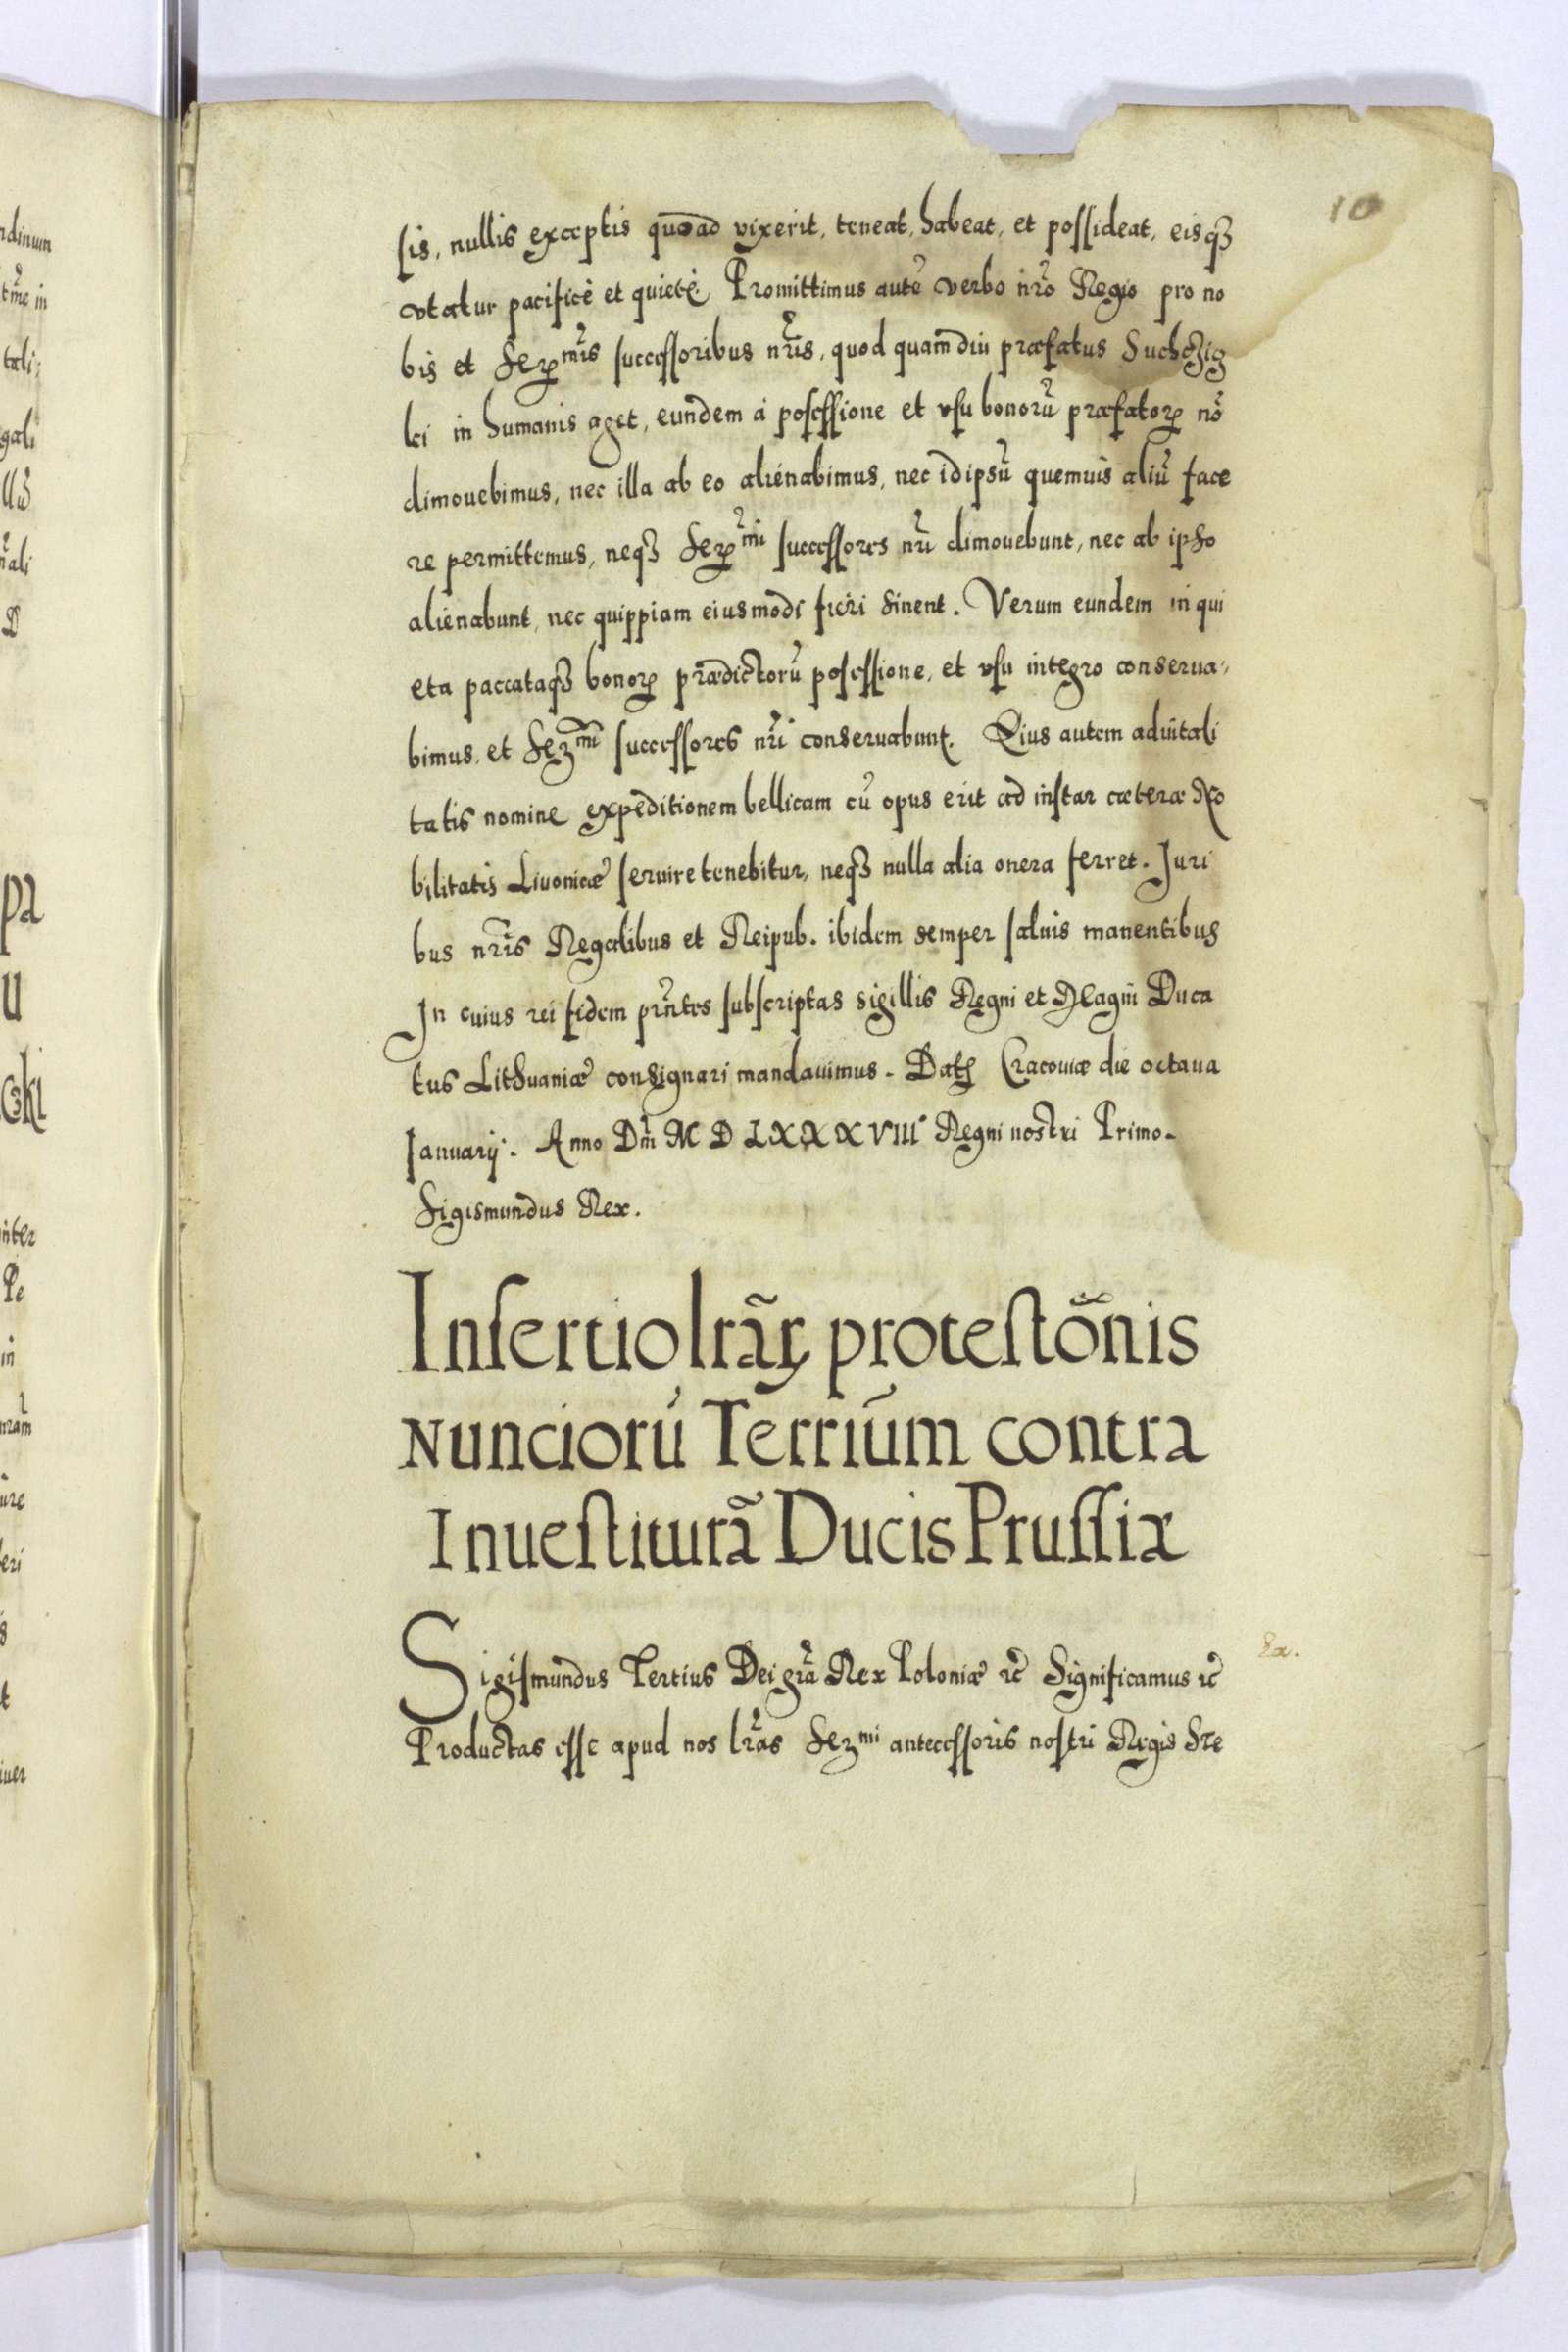 10
sis, nullis exceptis quoad vixerit, teneat, habeat, et possideat, eisqȝ
vtatur pacificè et quietè. Promittimus autẽ verbo nr̃o Regio pro no
bis et Serꝫmis successoribus nr̃is, quod quamdiu præfatus Suchczig
lei in humanis aget, eundem à posessione et vsu bonorũ præfatorꝫ nõ
dimouebimus, nec illa ab eo alienabimus, nec idipsũ quemuis aliũ face
re permittemus, neqȝ Serꝫmi successores nr̃i dimouebunt, nec ab ipso
alienabunt, nec quippiam eiusmodi fieri sinent. Verum eundem in qui
eta paccataqȝ bonorꝫ prædictorũ posessione, et vsu integro conserua-
bimus, et Serꝫmi successores nr̃i conseruabunt. Eius autem aduitali
tatis nomine expeditionem bellicam cũ opus erit ad instar cæteræ No
bilitatis Liuonicæ seruire tenebitur, neqȝ nulla alia onera ferret. Juri
bus nr̃is Regalibus et Reipub. ibidem semper saluis manentibus
In cuius rei fidem pr̃ntes subscriptas sigillis Regni et Magni Duca
tus Lithuaniæ consignari mandauimus. Datꝫ Cracouiæ die octaua
Januarij. Anno Dm̃ M D LXXXVIII Regni nostri Primo.
Sigismundus Rex.
Insertio lrãrꝫ protestõnis
Nunciorũ Terriũm contra
Inuestiturã Ducis Prussiæ
Sigismundus Tertius Dei gr̃a Rex Poloniæ ꝛc̃ Significamus ꝛc̃
Productas esse apud nos lr̃as Serꝫmi antecessoris nostri Regis Ste